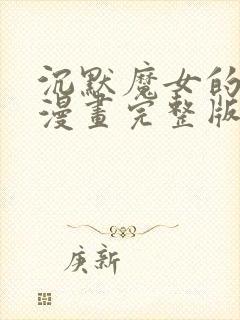 沉默魔女的
漫畫完整版
庚新